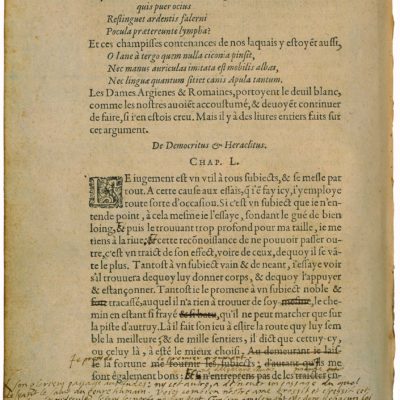 quis puer ocius
Restinguet ardentis falerni
Pocula prætereunte lympha?
Et ces champisses contenances de nos laquais y estoyẽt aussi,
O Iane à tergo quem nulla ciconia pinsit,
Nec manus auriculas imitata est mobilis albas,
Nec linguæ quantum sitret canis Apula tantum.
Les Dames Argienes & Romaines, portoyent le deuil blanc,
comme les nostres auoiẽt accoustumé, & deuoyẽt continuer
de faire, si i'en estois creu. Mais il y a des liures entiers faits sur
cet argument.
De Democritus & Heraclitus.
CHAP. L.
LE iugement est vn vtil à tous subiects, & se mesle par
tout. A cette cause aux essais, q̃ i'ẽ fay icy, i'y employe
toute sorte d'occasion. Si c'est vn subiect que ie n'en-
tende point, à cela mesme ie l'essaye, sondant le gué de bien
loing, & puis le trouuant trop profond pour ma taille, ie me
tiens à la riue; & cette reconnoissance de ne pouuoir passer ou-
tre, c'est vn traict de son effect, voire de ceux, dequoy il se vã-
te le plus. Tantost à vn subiect vain & de neant, i'essaye voir
s'il trouuera dequoy luy donner corps, & dequoy l'appuyer
& estançonner. Tantost ie le promene à vn subiect noble &
fort tracassé, auquel il n'a rien à trouuer de soy mesme, le che-
min en estant si frayé & si batu, qu'il ne peut marcher que sur
la piste d'autruy. Là il fait son ieu à eslire la route qui luy sem-
ble la meilleure; & de mille sentiers, il dict que cettuy-cy,
ou celuy là, a esté le mieux choisi. Au demeurant ie lais-
se la fortune me fournir les subiects, d'autant qu'ils me
sont également bons: & n'entreprens pas de les traicter en-